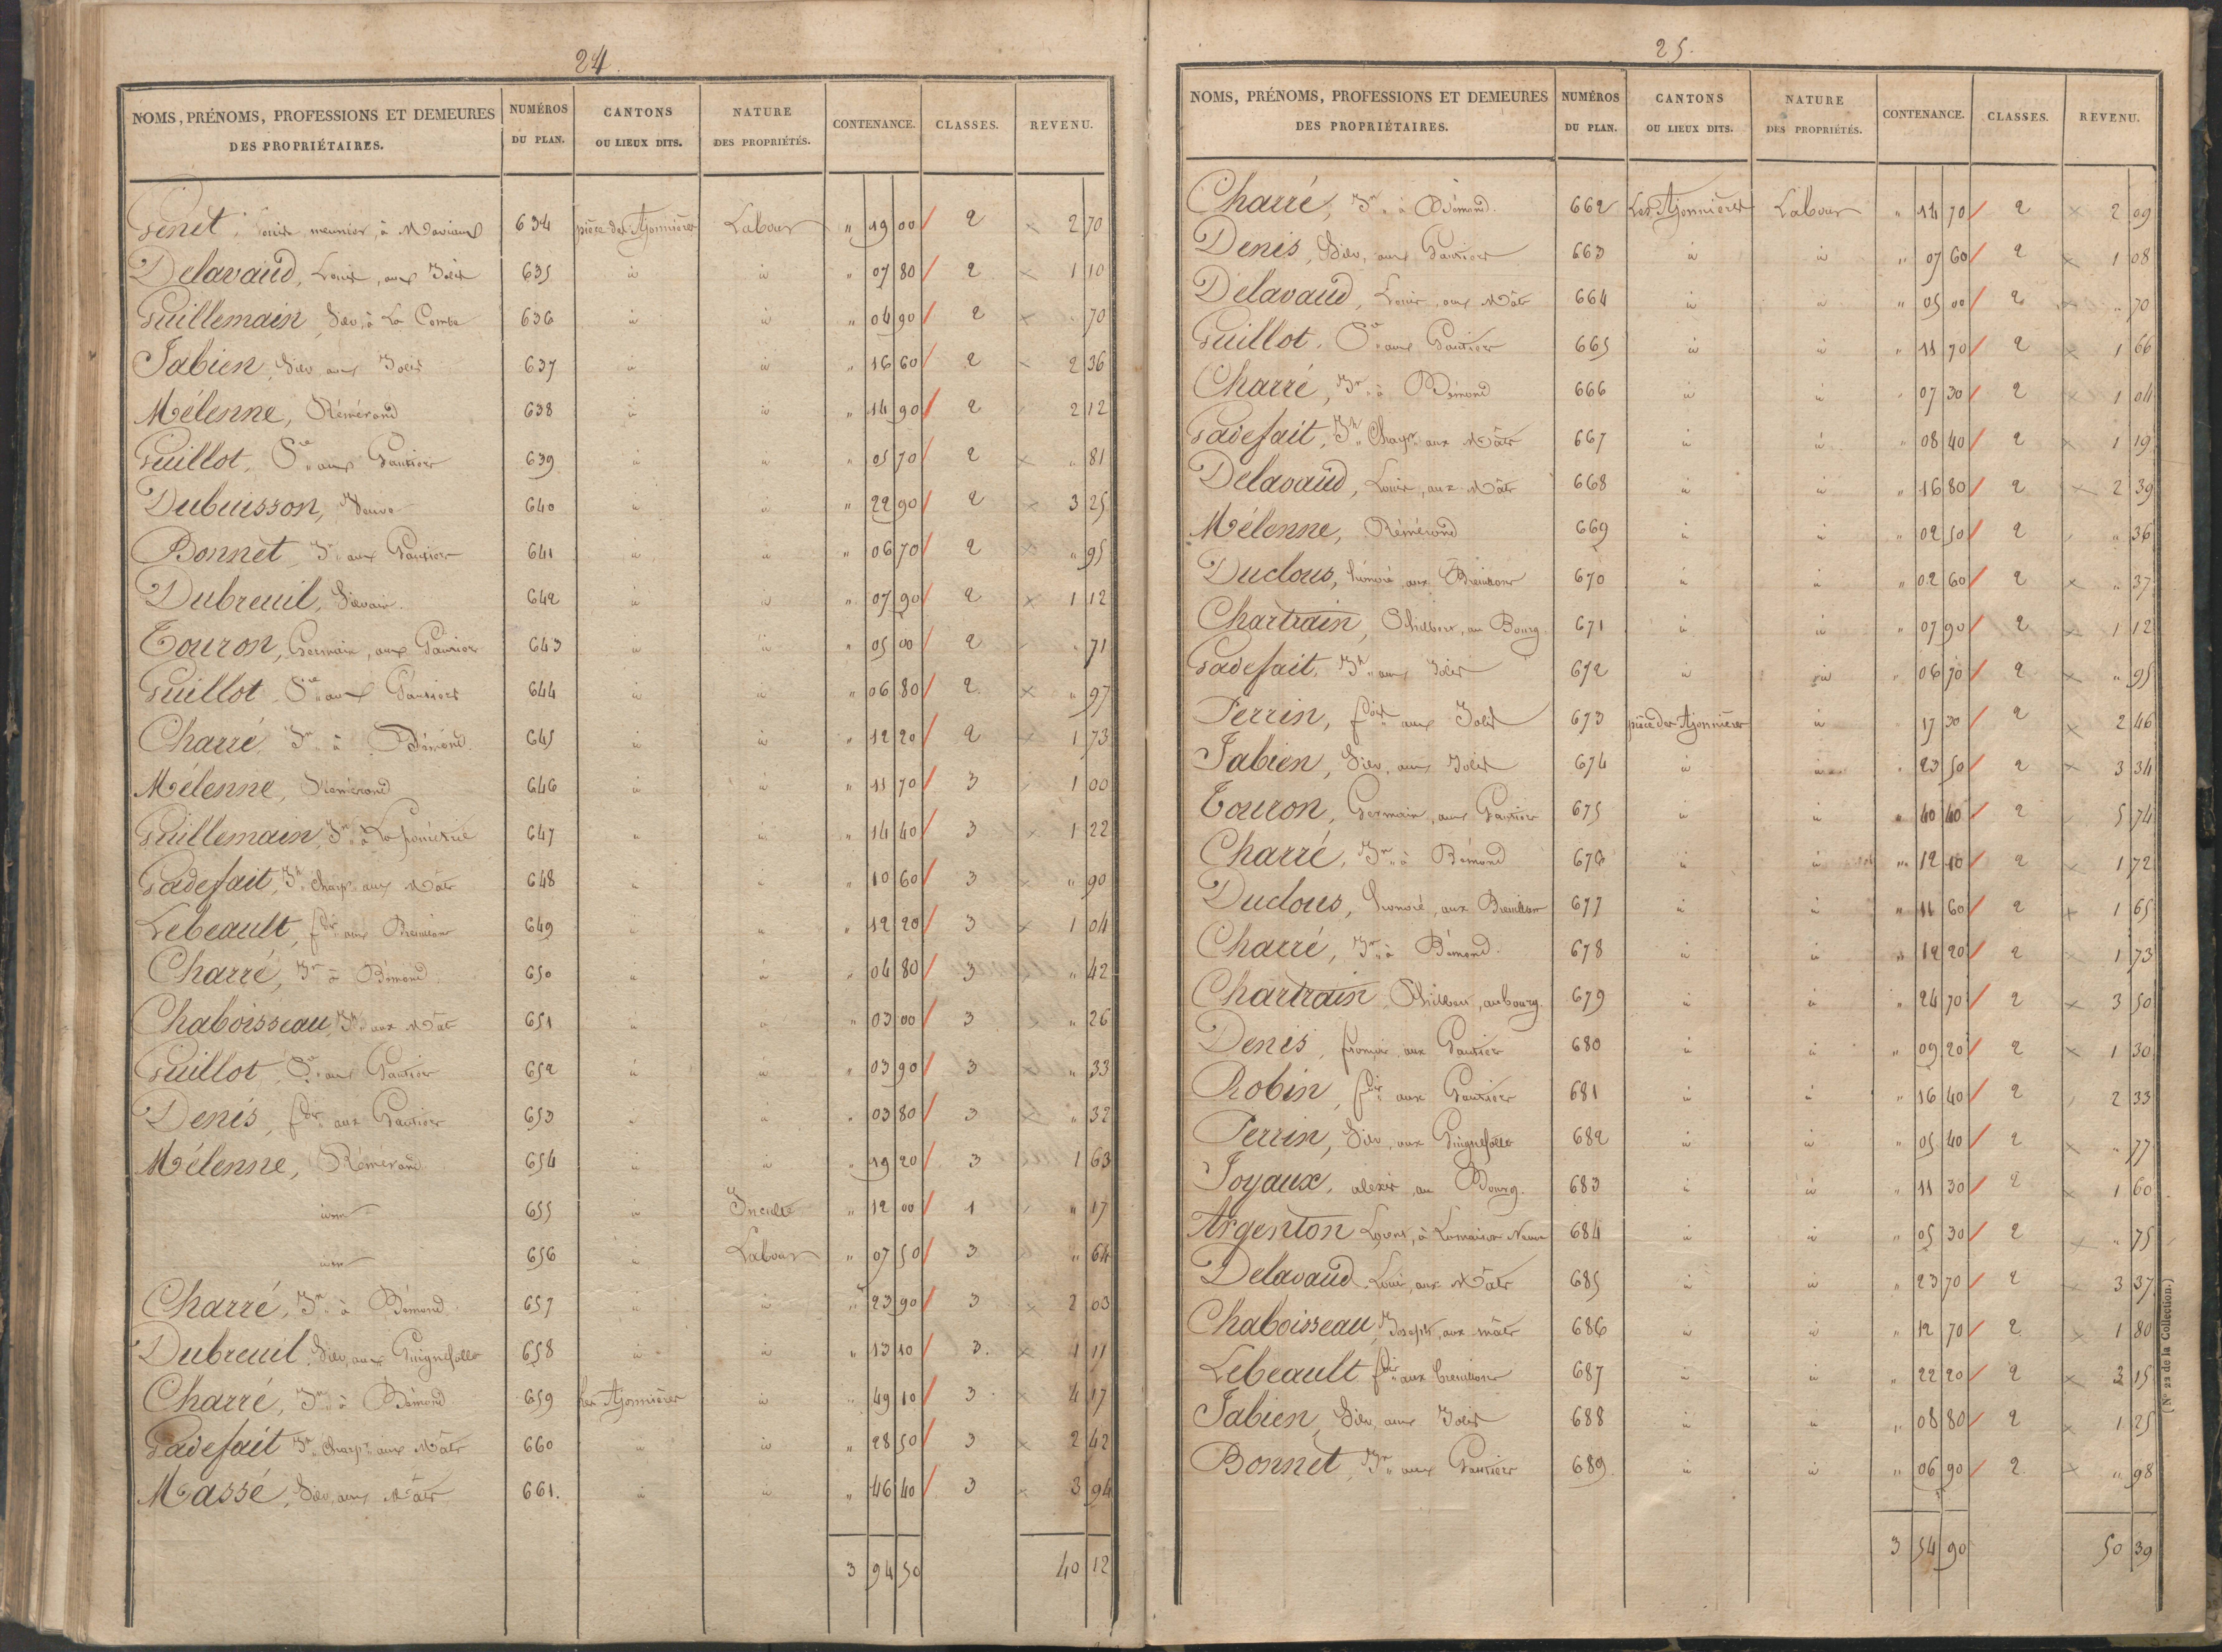 24.
NOMS, PRÉNOMS, PROFESSIONS ET DEMEURES DES PROPRIÉTAIRES. NUMÉROS DU PLAN. CANTONS OU LIEUX DITS. NATURE DES PROPRIÉTÉS. CONTENANCE. CLASSES. REVENU.
Genet, Louis, meunier, à 634 pièce des Ajonnières Labour " 19 00 / 2 × 2 70
Delavaud, Louis, aux Jolis 635 id id " 07 80 / 2 × 1 10
Guillemain, Silv, à La Combe 636 id id " 04 90 / 2 × " 70
Fabien, Silv aux Jolis 637 id id " 16 60 / 2 × 2 36
Mélenne, Rémérand 638 id id " 14 90 / 2 2 12
Guillot, aux Gautier 639 id id " 05 70 / 2 × " 81
Dubuisson, Veuve 640 id id " 22 90 / 2 × 3 25
Bonnet, Jn aux Gautier 641 id id " 06 70 / 2 × " 95
Dubreuil, Silvain 642 id id " 07 90 / 2 × 1 12
Touron, Germain, aux Gautier 643 id id " 05 00 / 2 " 71
Guillot aux Gautier 644 id id " 06 80 / 2 × " 97
Charré, Jn à Bémond. 645 id id " 12 20 / 2 × 1 73
Mélenne, Rémérand 646 id id " 11 70 / 3 1 00
Guillemain, Jn à La 647 id id " 14 40 / 3 × 1 22
Gadefait, Jh Charp aux Mâts 648 id id " 10 60 / 3 × " 90
Lebeault, fdr aux 649 id id " 12 20 / 3 × 1 04
Charré, Jn à Bémond 650 id id " 04 80 / 3 × " 42
Chaboisseau, Jh aux Mâts 651 id id " 03 00 / 3 × " 26
Guillot, aux Gautier 652 id id " 03 90 / 3 × " 33
Denis, fdr aux Gautier 653 id id " 03 80 / 3 × " 32
Mélenne, Rémérand 654 id id " 19 20 / 3 1 63
idem 655 id Inculte " 12 00 / 1 " 17
idem 656 id Labour " 07 50 / 3 " 64
Charré, Jn à Bémond 657 id id " 23 90 / 3 × 2 03
Dubreuil, Silv, aux Guignefolle 658 id id " 13 10 / 3. × 1 11
Charré, Jn à Bémond 659 les Ajonnières id " 49 10 / 3 × 4 17
Gadefait, Jh Charp aux Mâts 660 id id " 28 50 / 3 × 2 42
Massé, Silv, aux Mâts 661. id id " 46 40 / 3 × 3 94
3 94 50 40 12
25.
NOMS, PRÉNOMS, PROFESSIONS ET DEMEURES DES PROPRIÉTAIRES. NUMÉROS DU PLAN. CANTONS OU LIEUX DITS. NATURE DES PROPRIÉTÉS. CONTENANCE. CLASSES. REVENU.
Charré, Jn à Bémond. 662 Les Ajonnières Labour " 14 70 / 2 × 2 09
Denis, Silv, aux Gautier 663 id id " 07 60 / 2 × 1 08
Delavaud, Louis, aux Mâts 664 id id " 05 00 / 2 × " 70
Guillot, aux Gautier 665 id id " 11 70 / 2 × 1 66
Charré, Jn à Bémond 666 id id " 07 30 / 2 × 1 04
Gadefait, Jh Charp aux Mâts 667 id id " 08 40 / 2 × 1 19
Delavaud, Louis, aux Mâts 668 id id " 16 80 / 2 × 2 39
Mélenne, Rémérand 669 id id " 02 50 / 2 " 36
Duclous, honoré, aux 670 id id " 02 60 / 2 × " 37
Chartrain, Philbert, au Bourg. 671 id id " 07 90 / 2 × 1 12
Gadefait, Jh aux Jolis 672 id id " 06 70 / 2 × " 95
Perrin, aux Jolis 673 pièce des Ajonnières id 17 30 / 2 × 2 46
Fabien, Silv, aux Jolis 674 id id " 23 50 / 2 × 3 34
Touron, Germain, aux Gautier 675 id id " 40 40 / 2 5 74
Charré, Jn à Bémond 676 id id " 12 10 / 2 × 1 72
Duclous, honoré, aux 677 id id " 11 60 / 2 × 1 65
Charré, Jn à Bémond. 678 id id " 12 20 / 2 × 1 73
Chartrain Philbert, au bourg. 679 id id " 24 70 / 2 × 3 50
Denis, aux Gautier 680 id id " 09 20 / 2 × 1 30
Robin, fdr aux Gautier 681 id id " 16 40 / 2 2 33
Perrin, Silv, aux Guignefolle 682 id id " 05 40 / 2 × " 77
Joyaux, alexis, au Bourg. 683 id id " 11 30 / 2 × 1 60
Argenton à Lamaison Neuve 684 id id " 05 30 / 2 × " 75
Delavaud Louis, aux Mâts 685 id id " 23 70 / 2 × 3 37
Chaboisseau, Joseph, aux mâts 686 id id " 12 70 / 2 × 1 80
Lebeault fdr aux 687 id id " 22 20 / 2 × 3 15
Fabien, Silv, aux Jolis 688 id id " 08 80 / 2 × 1 25
Bonnet, Jn aux Gautier 689 id id " 06 90 / 2 × " 98
3 54 90 50 39
(N° 22 de la Collection.)